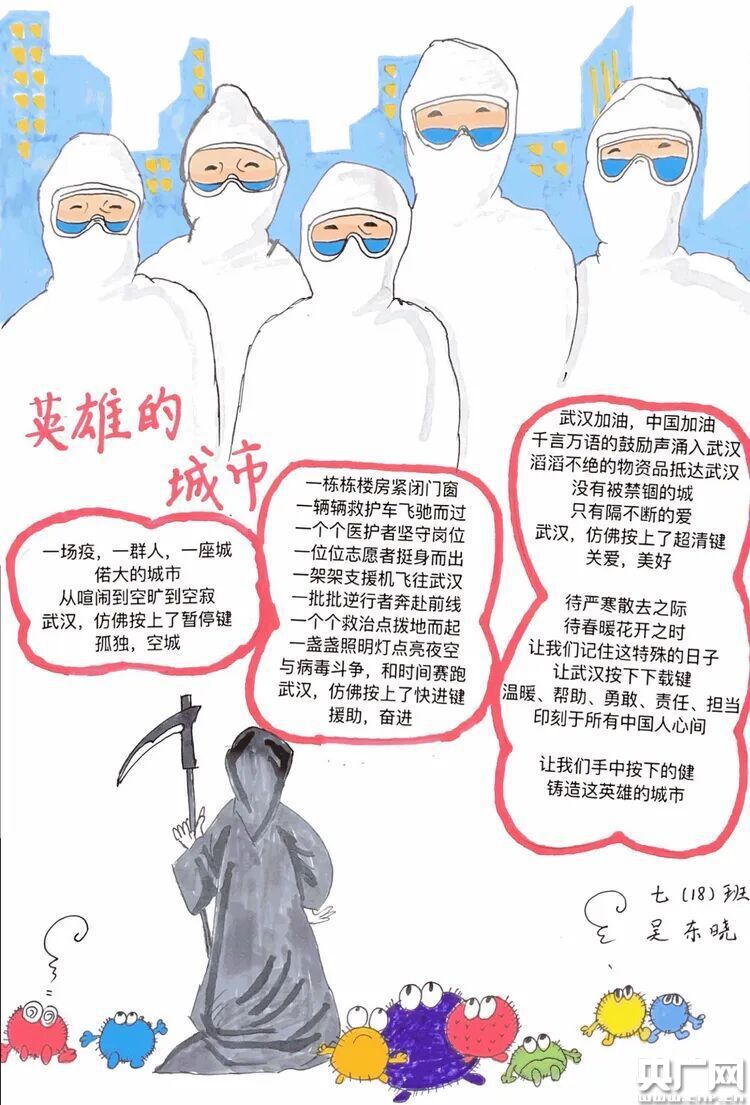 英雄的
城市
一场疫，一群人，一座城
偌大的城市
从喧闹到空旷到空寂
武汉，仿佛按上了暂停键
孤独，空城
一栋栋楼房紧闭门窗
一辆辆救护车飞驰而过
一个个医护者坚守岗位
一位位志愿者挺身而出
一架架支援机飞往武汉
一批批逆行者奔赴前线
一个个救治点拨地而起
一盏盏照明灯点亮夜空
与病毒斗争，和时间赛跑
武汉，仿佛按上了快进键
援助，奋进
武汉加油，中国加油
千言万语的鼓励声涌入武汉
滔滔不绝的物资品抵达武汉
没有被禁锢的城
只有隔不断的爱
武汉，仿佛按上了超清键
关爱，美好
待严寒散去之际
待春暖花开之时
让我们记住这特殊的日子
让武汉按下下载键
温暖、帮助、勇敢、责任、担当
印刻于所有中国人心间
让我们手中按下的健
铸造这英雄的城市
七(18)班
吴东晓
央广网
www.cnr.cn